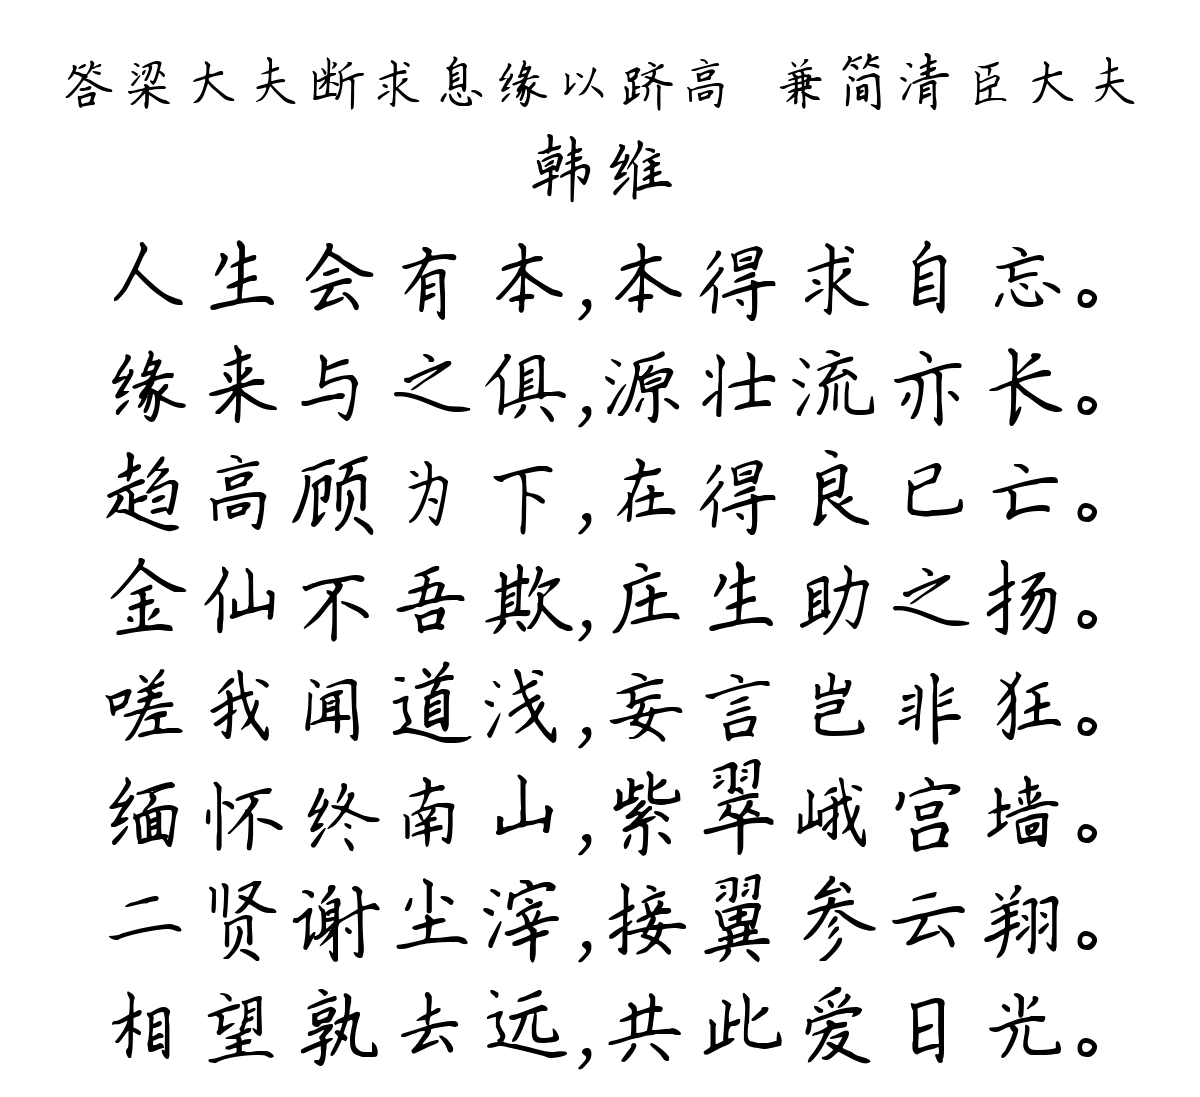 答梁大夫断求息缘以跻高 兼简清臣大夫
韩维
人生会有本,本得求自忘。
缘来与之俱,源壮流亦长。
趋高顾为下,在得良已亡。
金仙不吾欺,庄生助之扬。
嗟我闻道浅,妄言岂非狂。
缅怀终南山,紫翠峨宫墙。
二贤谢尘滓,接翼参云翔。
相望孰去远,共此爱日光。